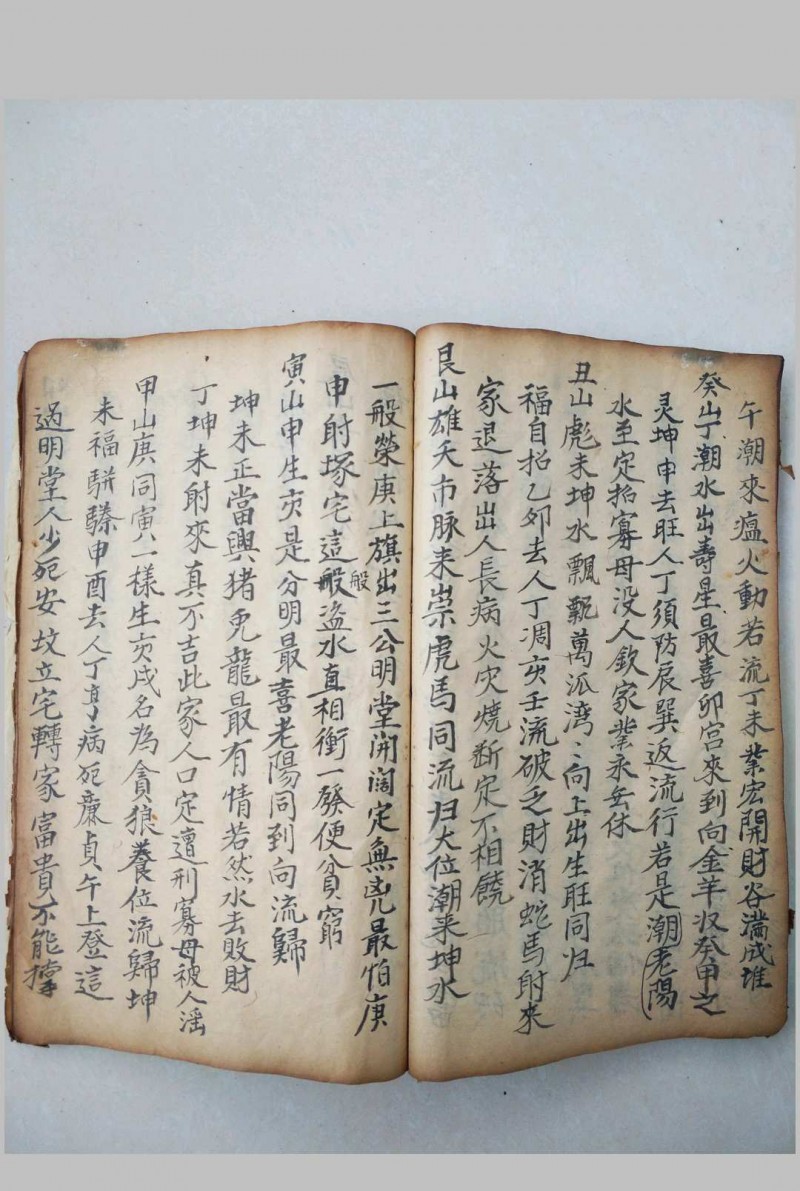 午潮來瘟火動若流丁未業宏開財谷滿成堆
癸山丁潮水出壽星最喜卯宮來到向金羊収癸甲之
灵坤申去旺人丁須防辰巽返流行若是潮老陽
水至定招寡母没人欽家業永無休
丑山彪未坤水飄飄萬派湾〻向上出生旺同归
福自招乙夘去人丁凋亥壬流破乏財消蛇馬射來
家退落出人長病火灾燒断定不相饒
艮山雄天市脉来崇虎馬同流归大位潮来坤水
一般榮庚上旗出三公明堂開闊定無凶最怕庚
申射塚宅這般盗水直相衝一發便貧窮
般
寅山申生亥是分明最喜老陽同到向流歸
坤未正當興猪兎龍最有情若然水去敗財
丁坤未射來真不吉此家人口定遭刑寡母被人滛
甲山庚同寅一樣生亥戌名為貪狼養位流歸坤
未福駢臻申酉去人丁亨病死廉貞午上登這
過明堂人少死安坟立宅轉家富貴不能擋